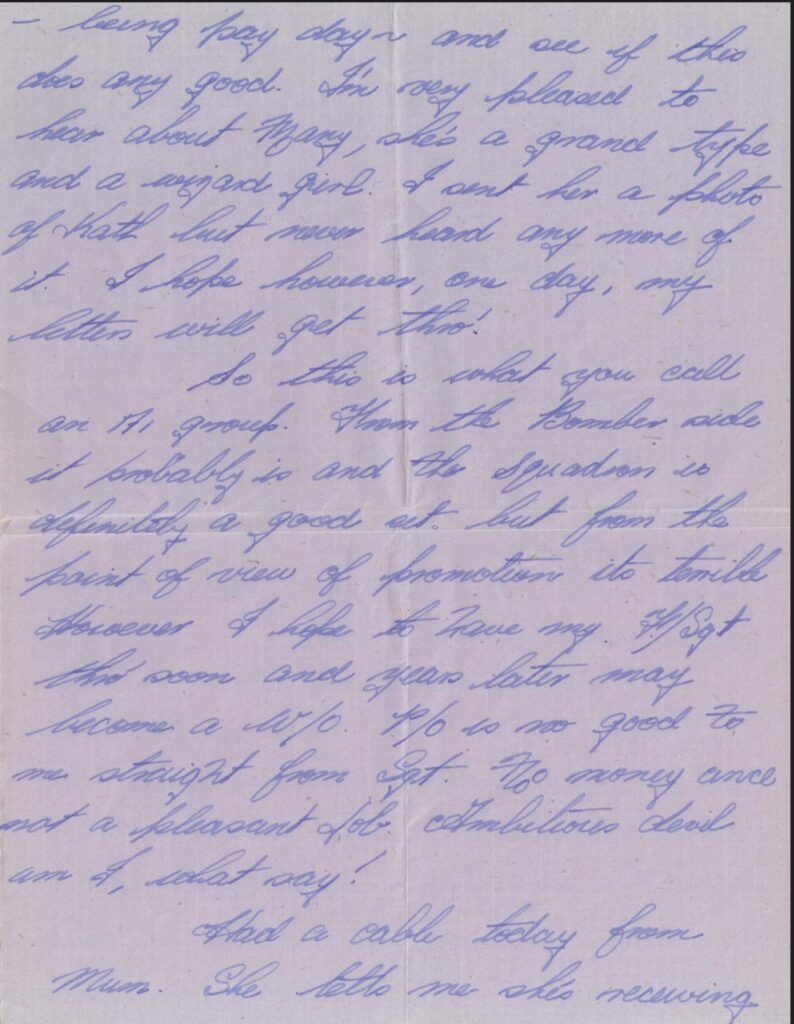 – being pay day ~ and see if this
does any good. I'm very pleased to
hear about Mary, she's a grand type
and a wizard girl. I sent her a photo
of Kath but never heard any more of
it. I hope however, one day, my
letters will get thro'.
So this is what you call
an A1 group. From the Bomber side
it probably is and the Squadron is
definitely a good set. but from the
point of view of promotion its terrible
However I hope to have my F/Sgt
thro' soon and years later may
become a W/O. P/O is no good to
me straight from Sgt. No money and
not a pleasant job. Ambitious devil
am I, what say!
Had a cable today from
Mum. She tells me she's receiving